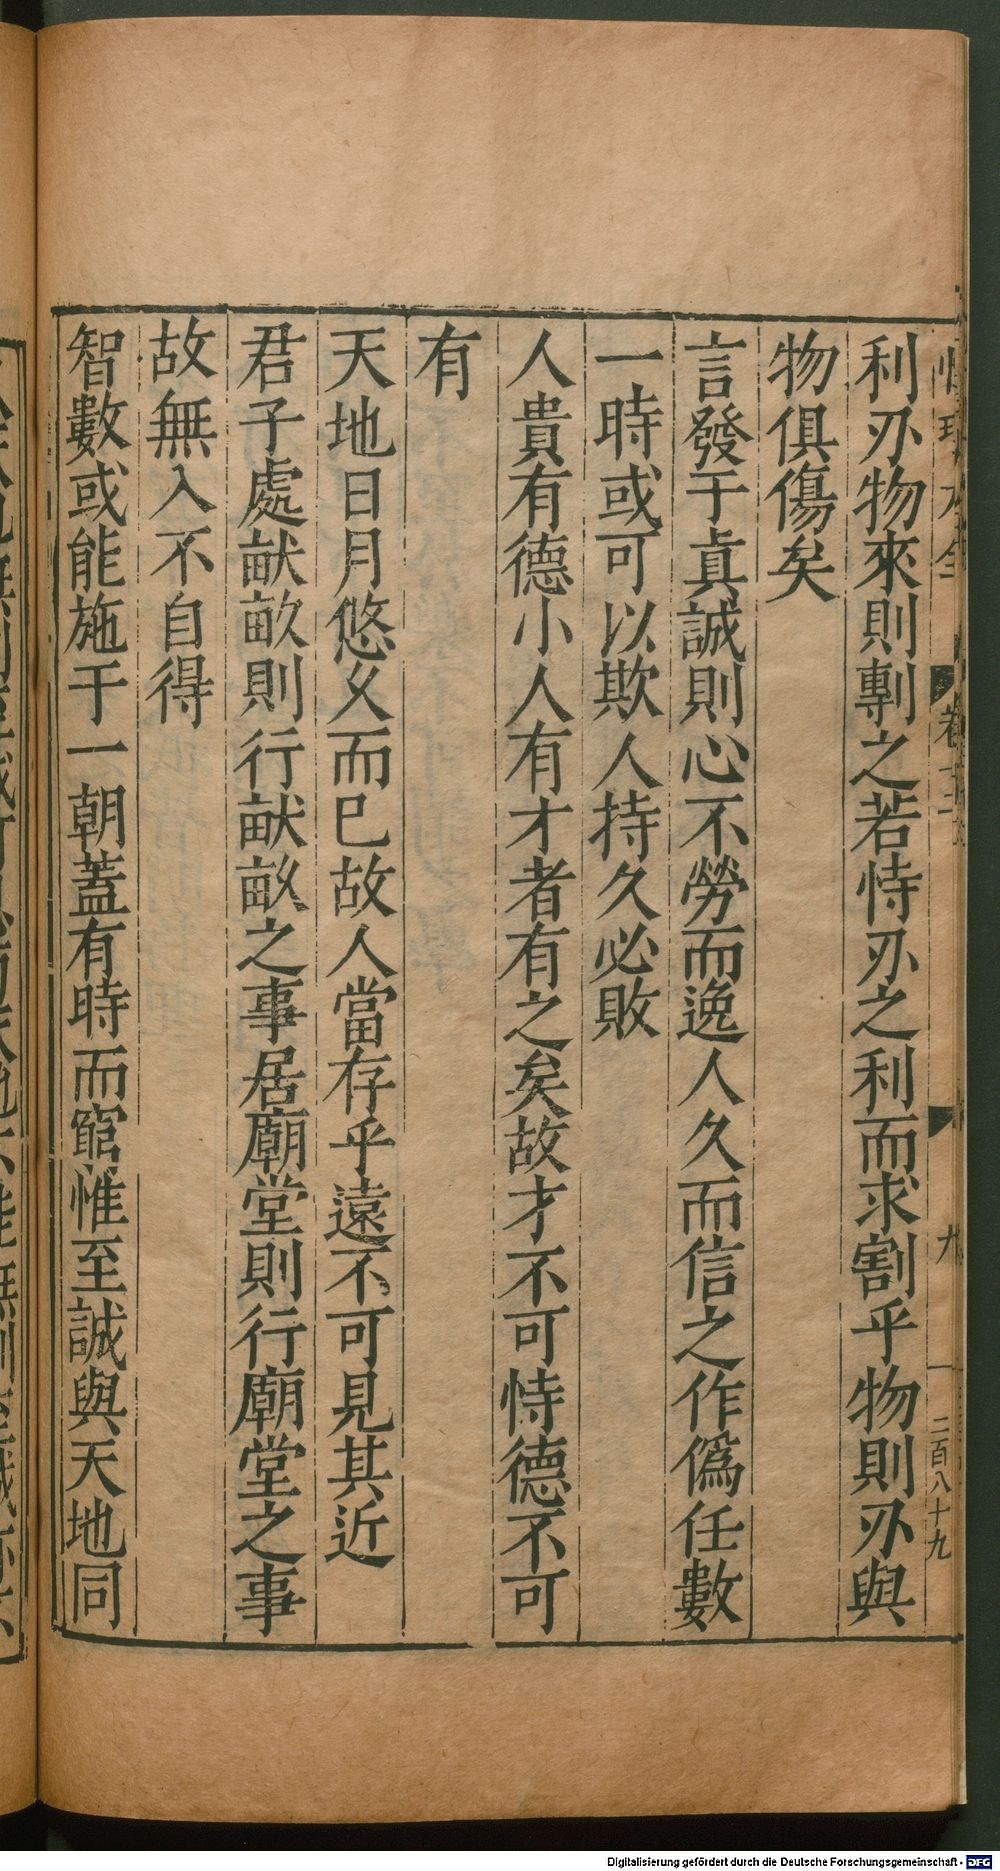 卷十二
九
二百八十九
利刃物來則剸之若恃刃之利而求割乎物則刃與
物俱傷矣
言發于眞誠則心不勞而逸人久而信之作僞任數
一時或可以欺人持久必敗
人貴有德小人有才者有之矣故才不可恃德不可
有
天地日月悠久而已故人當存乎遠不可見其近
君子處畎畝則行畎畝之事居廟堂則行廟堂之事
故無入不自得
智數或能施于一朝蓋有時而窮惟至誠與天地同
Digitalisierung gefördert durch die Deutsche Forschungsgemeinschaft - DFG